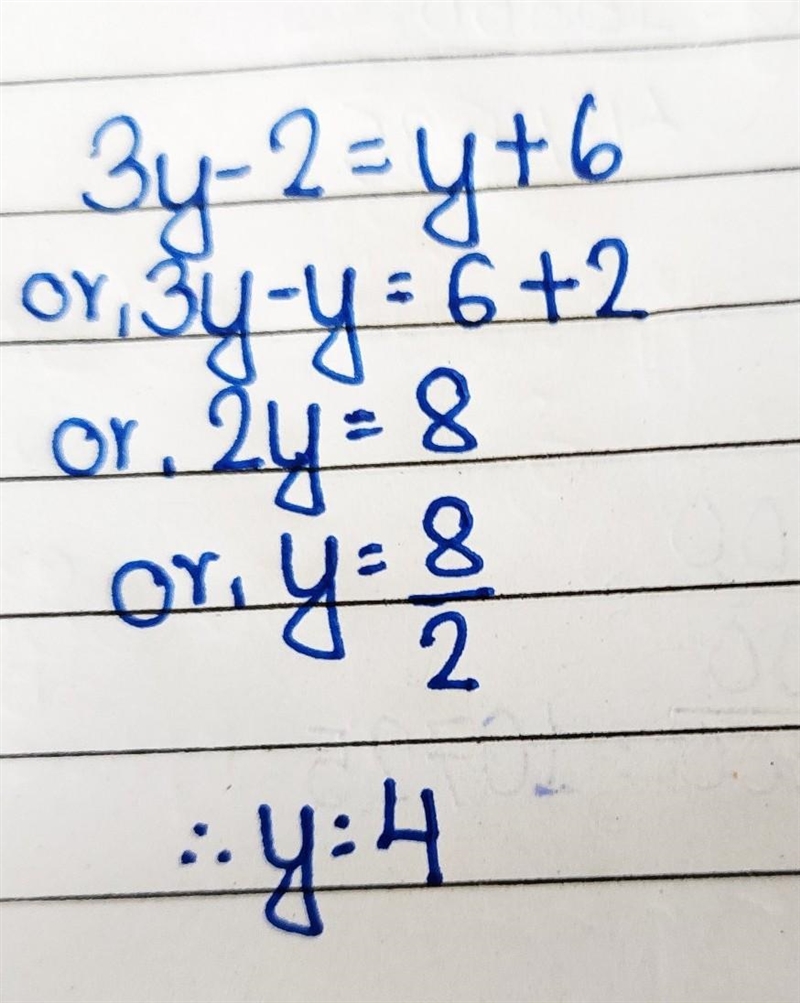 3y-2=y+6
or, 3y-y=6+2
or, 2y=8
or, y=8/2
∴ y=4